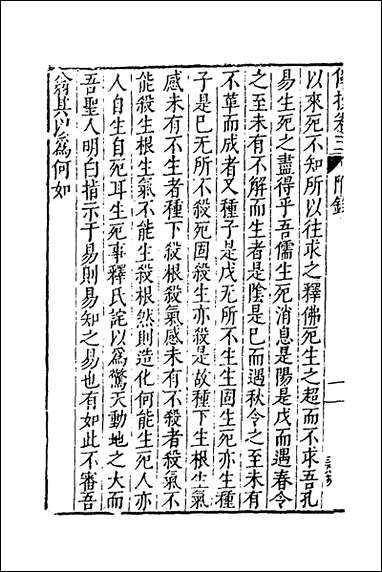 卷三 附錄
以來死不知所以往求之釋佛死生之超而不求吾孔
易生死之盡得乎吾儒生死消息是陽是戊而遇春令
之至未有不解而生者是陰是巳而遇秋令之至未有
不草而成者又種子是戊无所不生生固生死亦生種
子是巳无所不殺死固殺生亦殺是故種下生根生氣
感未有不生者種下殺根殺氣感未有不殺者殺氣不
能殺生根生氣不能生殺根然則造化何能生死人亦
人自生自死耳生死事釋氏詫以為驚天動地之大而
吾聖人明白指示于易則易知之易也有如此不審吾
翁其以爲何如